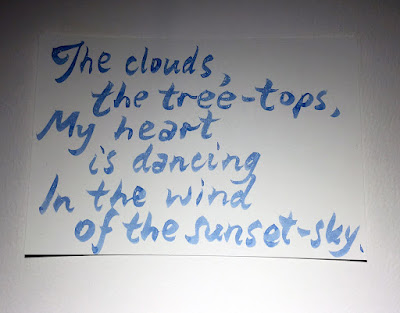 The clouds,
the tree-tops,
My heart
is dancing
In the wind
of the sunset-sky.